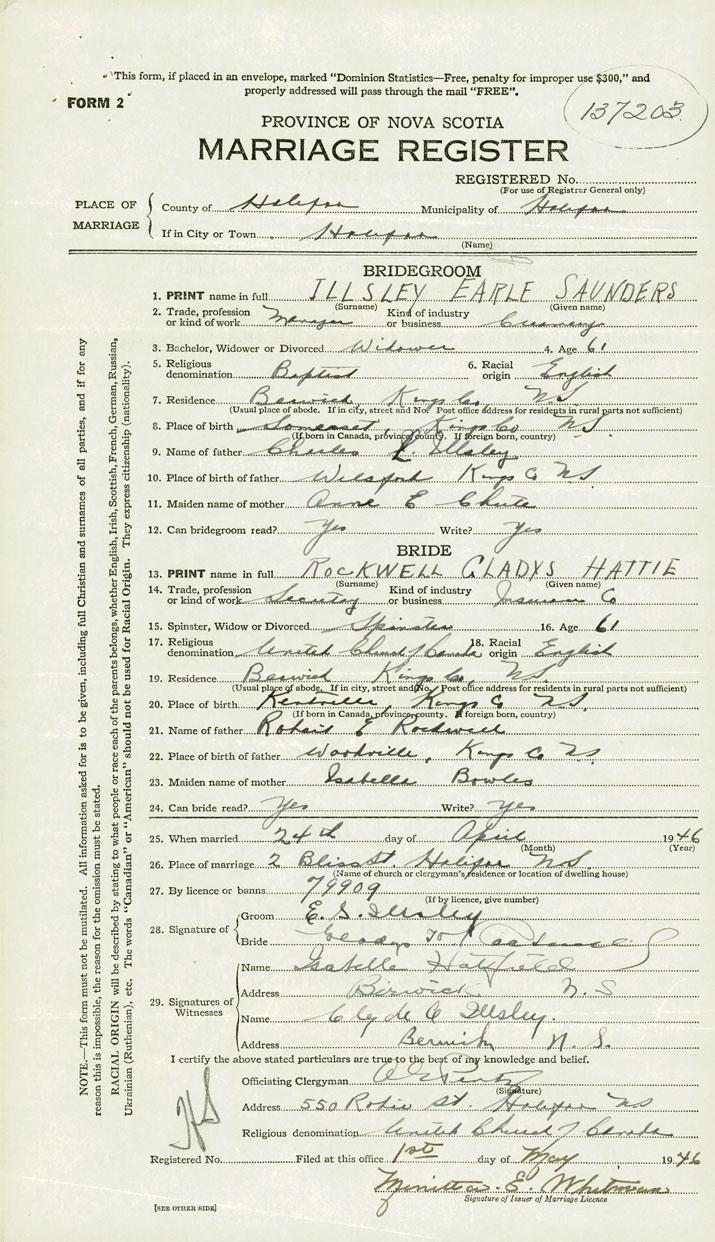 This form, if placed in an envelope, marked "Dominion Statistics—Free, penalty for improper use $300," and
properly addressed will pass through the mail "FREE".
FORM 2
137203
PROVINCE OF NOVA SCOTIA
MARRIAGE REGISTER
REGISTERED No.
(For use of Registrar General only)
PLACE OF MARRIAGE
County of Halifax Municipality of Halifax
If in City or Town Halifax
(Name)
BRIDEGROOM
1. PRINT name in full ILLSLEY EARLE SAUNDERS
(Surname) (Given name)
2. Trade, profession or kind of work Manager Kind of industry or business Creamery
3. Bachelor, Widower or Divorced Widower 4. Age 61
5. Religious denomination Baptist 6. Racial origin English
7. Residence Berwick Kings Co. N.S.
(Usual place of abode. If in city, street and No. Post office address for residents in rural parts not sufficient)
8. Place of birth Somerset, Kings Co N.S.
(If born in Canada, province, county. If foreign born, country)
9. Name of father Charles L. Illsley
10. Place of birth of father Kings Co NS
11. Maiden name of mother Anne E Chute
12. Can bridegroom read? Yes Write? Yes
BRIDE
13. PRINT name in full ROCKWELL GLADYS HATTIE
(Surname) (Given name)
14. Trade, profession or kind of work Secretary Kind of industry or business Insurance Co
15. Spinster, Widow or Divorced Spinster 16. Age 61
17. Religious denomination United Church of Canada 18. Racial origin English
19. Residence Berwick Kings Co. N.S.
(Usual place of abode. If in city, street and No. Post office address for residents in rural parts not sufficient)
20. Place of birth Kentville, Kings Co N.S.
(If born in Canada, province, county. If foreign born, country)
21. Name of father Robert E Rockwell
22. Place of birth of father Woodville, Kings Co NS
23. Maiden name of mother Isabella Bowles
24. Can bride read? Yes Write? Yes
25. When married 24th day of April 1946
(Month) (Year)
26. Place of marriage 2 Bliss St. Halifax N.S.
(Name of church or clergyman's residence or location of dwelling house)
27. By licence or banns 79909
(If by licence, give number)
28. Signature of
Groom E. S. Illsley
Bride Gladys H Rockwell
29. Signatures of Witnesses
Name Isabelle Hatfield
Address Berwick N.S
Name Clyde C Illsley.
Address Berwick N.S.
I certify the above stated particulars are true to the best of my knowledge and belief.
Officiating Clergyman
(Signature)
Address 550 Robie St. Halifax NS
Religious denomination United Church of Canada
Registered No. Filed at this office 1st day of May 1946
E. Whitman
Signature of Issuer of Marriage Licence
[SEE OTHER SIDE]
NOTE.—This form must not be mutilated. All information asked for is to be given, including full Christian and surnames of all parties, and if for any
reason this is impossible, the reason for the omission must be stated.
RACIAL ORIGIN will be described by stating to what people or race each of the parents belongs, whether English, Irish, Scottish, French, German, Russian,
Ukrainian (Ruthenian), etc. The words "Canadian" or "American" should not be used for Racial Origin. They express citizenship (nationality).